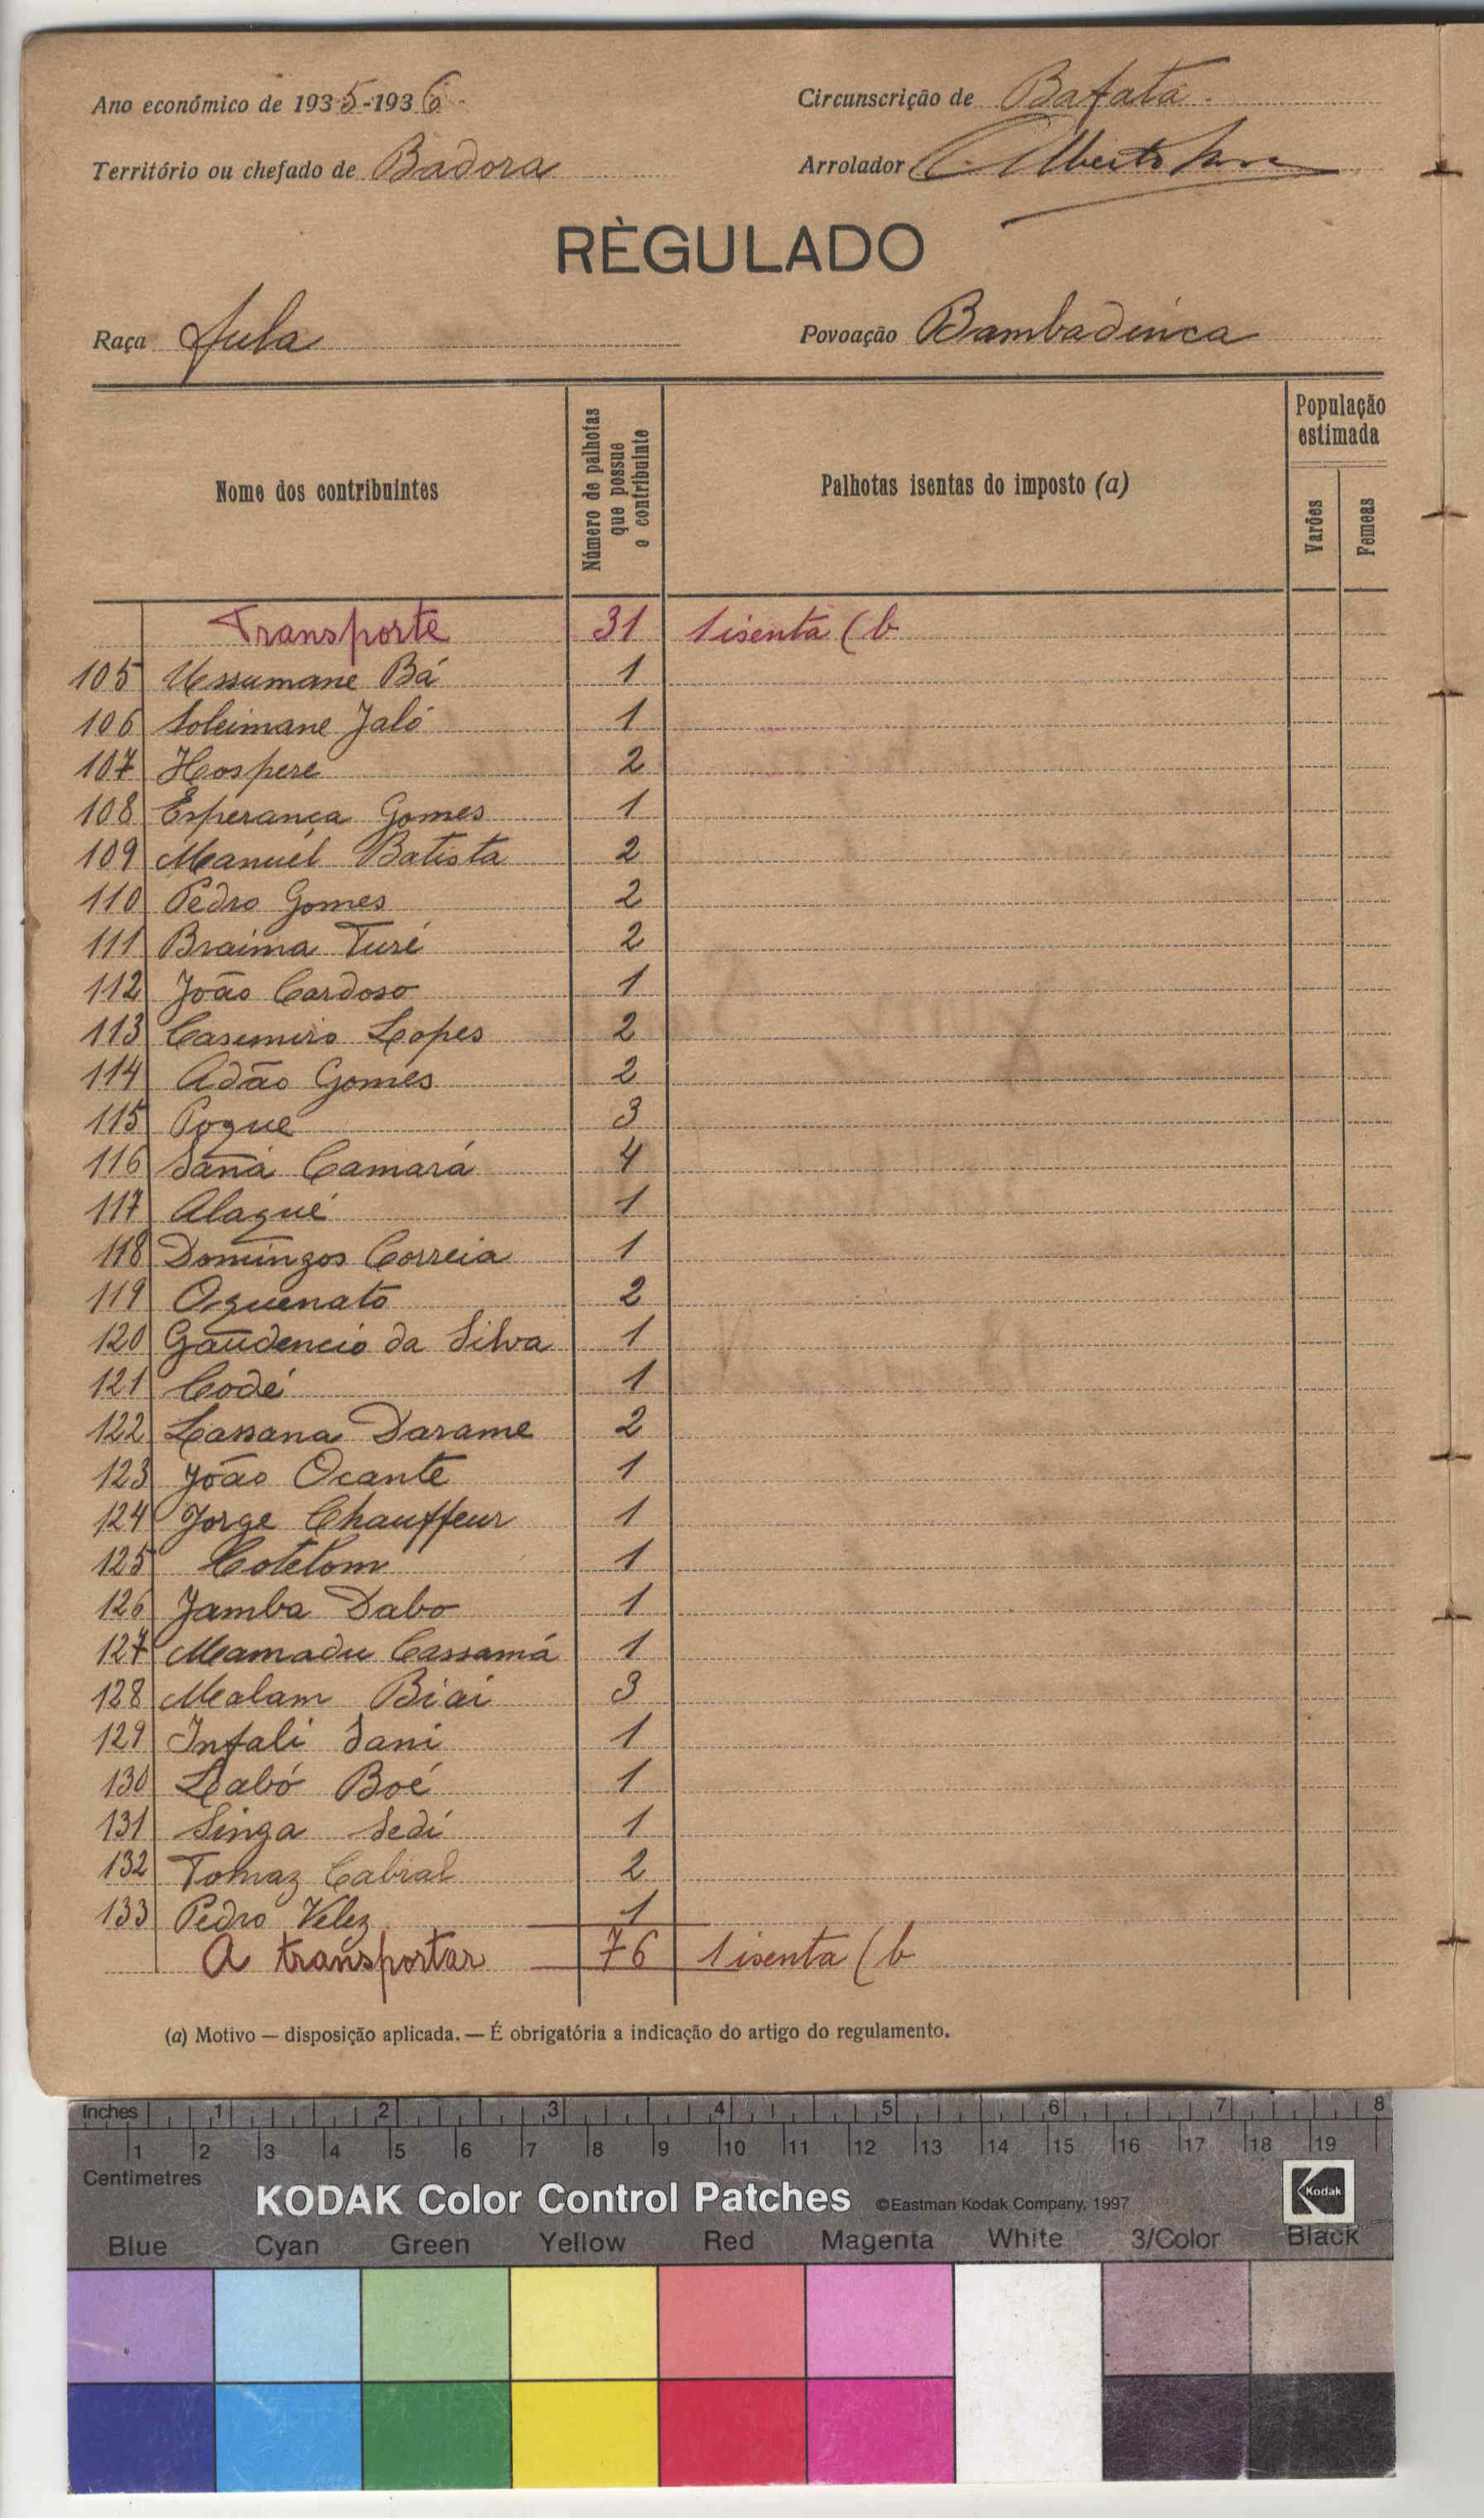 Ano económico de 1935-1936
Circunscrição de Bafata
Território ou chefado de Badora
Arrolador Alberto
RÈGULADO
Raça Fula
Povoação Bambadinca
Nome dos contribuintes
Número de palhotas que possue o contribuinte
Palhotas isentas do imposto (a)
População estimada
Varões
Femeas
Transporte 31 1 isenta (b
105 Ussumane Bá 1
106 Soleimane Jaló 1
107 Hospere 2
108 Esperança Gomes 1
109 Manuel Batista 2
110 Pedro Gomes 2
111 Braima Turé 2
112 João Cardoso 1
113 Casemiro Lopes 2
114 Adão Gomes 2
115 Pogue 3
116 Saná Camará 4
117 Alagué 1
118 Domingos Correia 1
119 Oguenato 2
120 Gaudencio da Silva 1
121 Codé 1
122 Lassana Darame 2
123 João Ocante 1
124 Jorge Chauffeur 1
125 Cotelom 1
126 Jamba Dabo 1
127 Mamadu Cassamá 1
128 Malam Biai 3
129 Infali Sani 1
130 Labó Boé 1
131 Singa Sedi 1
132 Tomaz Cabral 2
133 Pedro Velez 1
A transportar 76 1 isenta (b
(a) Motivo — disposição aplicada. — É obrigatória a indicação do artigo do regulamento.
Inches 1 2 3 4 5 6 7 8
1 2 3 4 5 6 7 8 9 10 11 12 13 14 15 16 17 18 19
Centimetres
KODAK Color Control Patches ©Eastman Kodak Company, 1997 Kodak
Blue Cyan Green Yellow Red Magenta White 3/Color Black